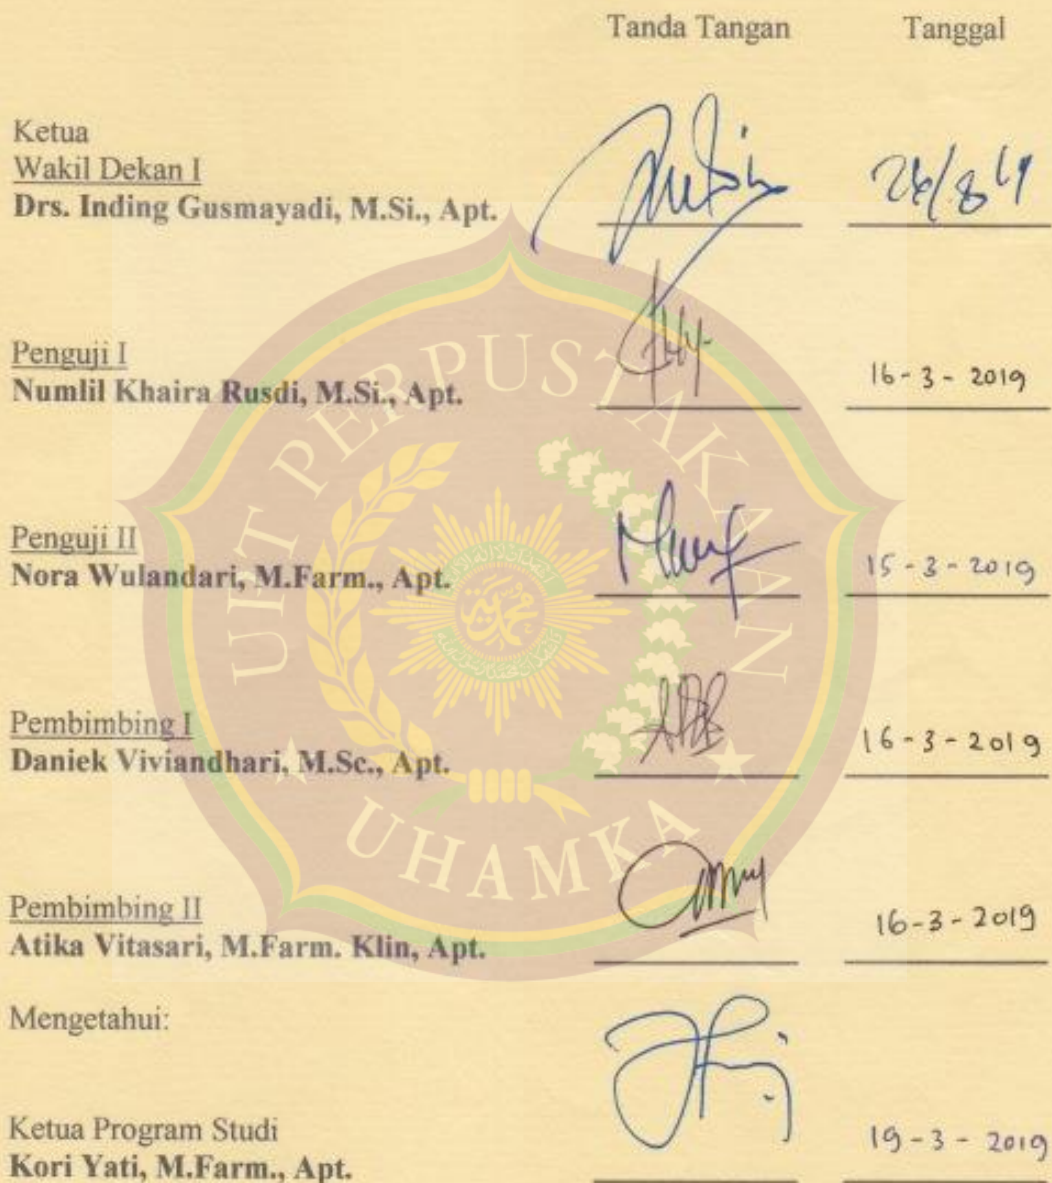 Tanda Tangan Tanggal
Ketua
Wakil Dekan I
Drs. Inding Gusmayadi, M.Si., Apt.
Penguji I
Numlil Khaira Rusdi, M.Si., Apt. 16-3-2019
Penguji II
Nora Wulandari, M.Farm., Apt. 15-3-2019
Pembimbing I
Daniek Viviandhari, M.Sc., Apt. 16-3-2019
Pembimbing II
Atika Vitasari, M.Farm. Klin, Apt. 16-3-2019
Mengetahui:
Ketua Program Studi
Kori Yati, M.Farm., Apt. 19-3-2019
UPT PERPUSTAKAAN
UHAMKA